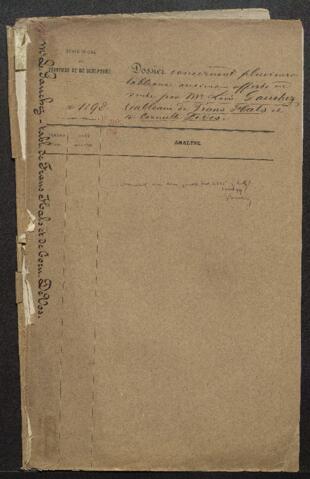 MUSÉE ROYAL
DE
PEINTURE ET DE SCULPTURE
N° 1198
Dossier concernant plusieurs
tableaux anciens offerts en
vente par Mr Léon Gauchez
(tableaux de Frans Hals et
de Corneille De Vos.
ANALYSE
Mr L. Gauchez - tabl. de Frans Hals et de Corn. De Vos.